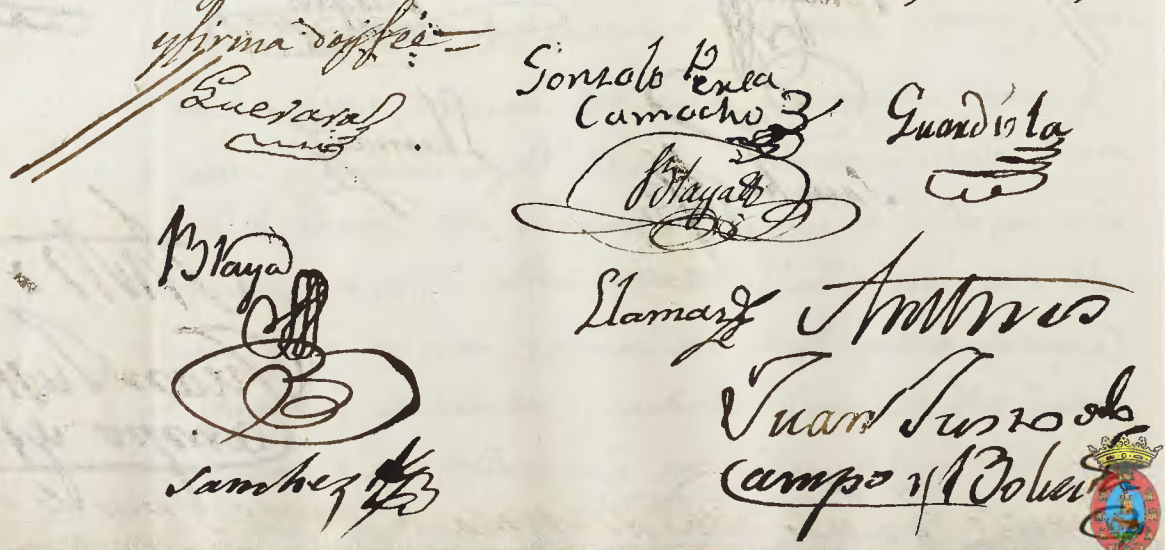 y firma doy fee =
Guevara
Gonzalo Perea
Camacho
Guardiola
Blaya
Blaya
Llamas
Antt
Juan Justo de
Campo y
Sanchez